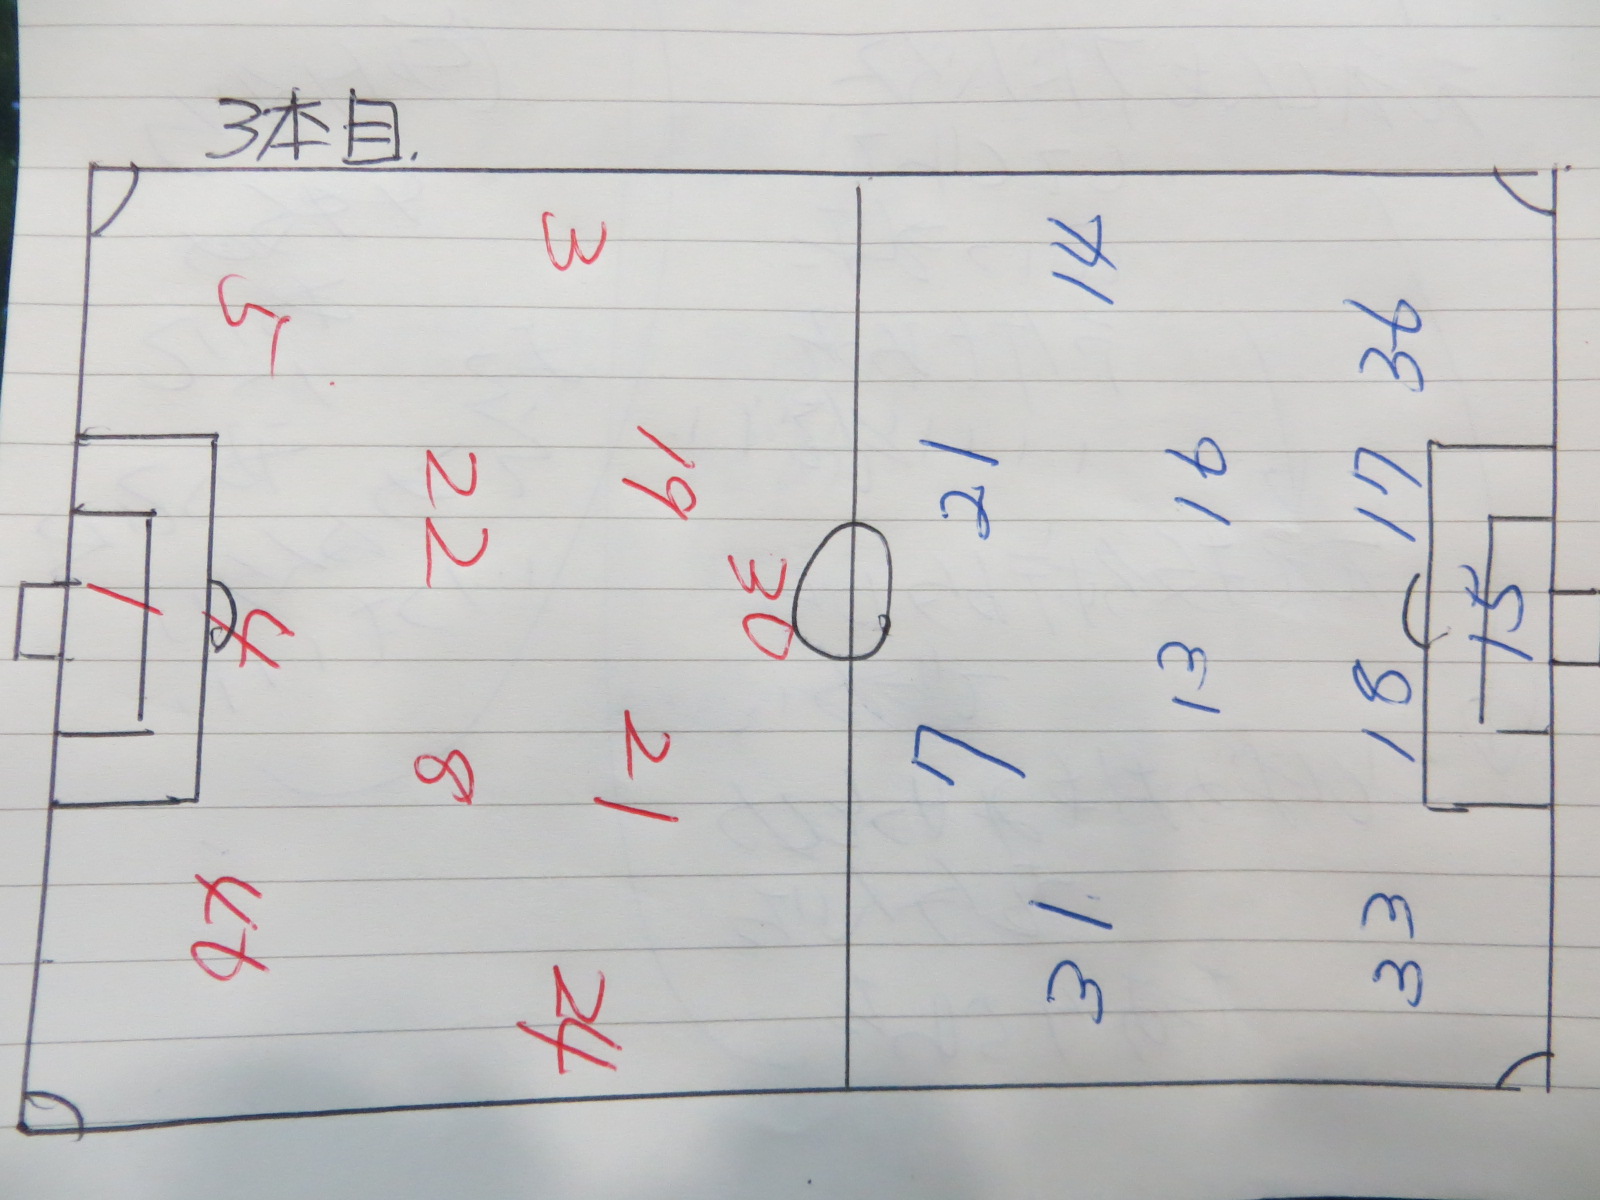 3本目.
3
5
19
22
30
1
4
21
8
46
24
14
36
21
16
17
15
13
18
7
31
33